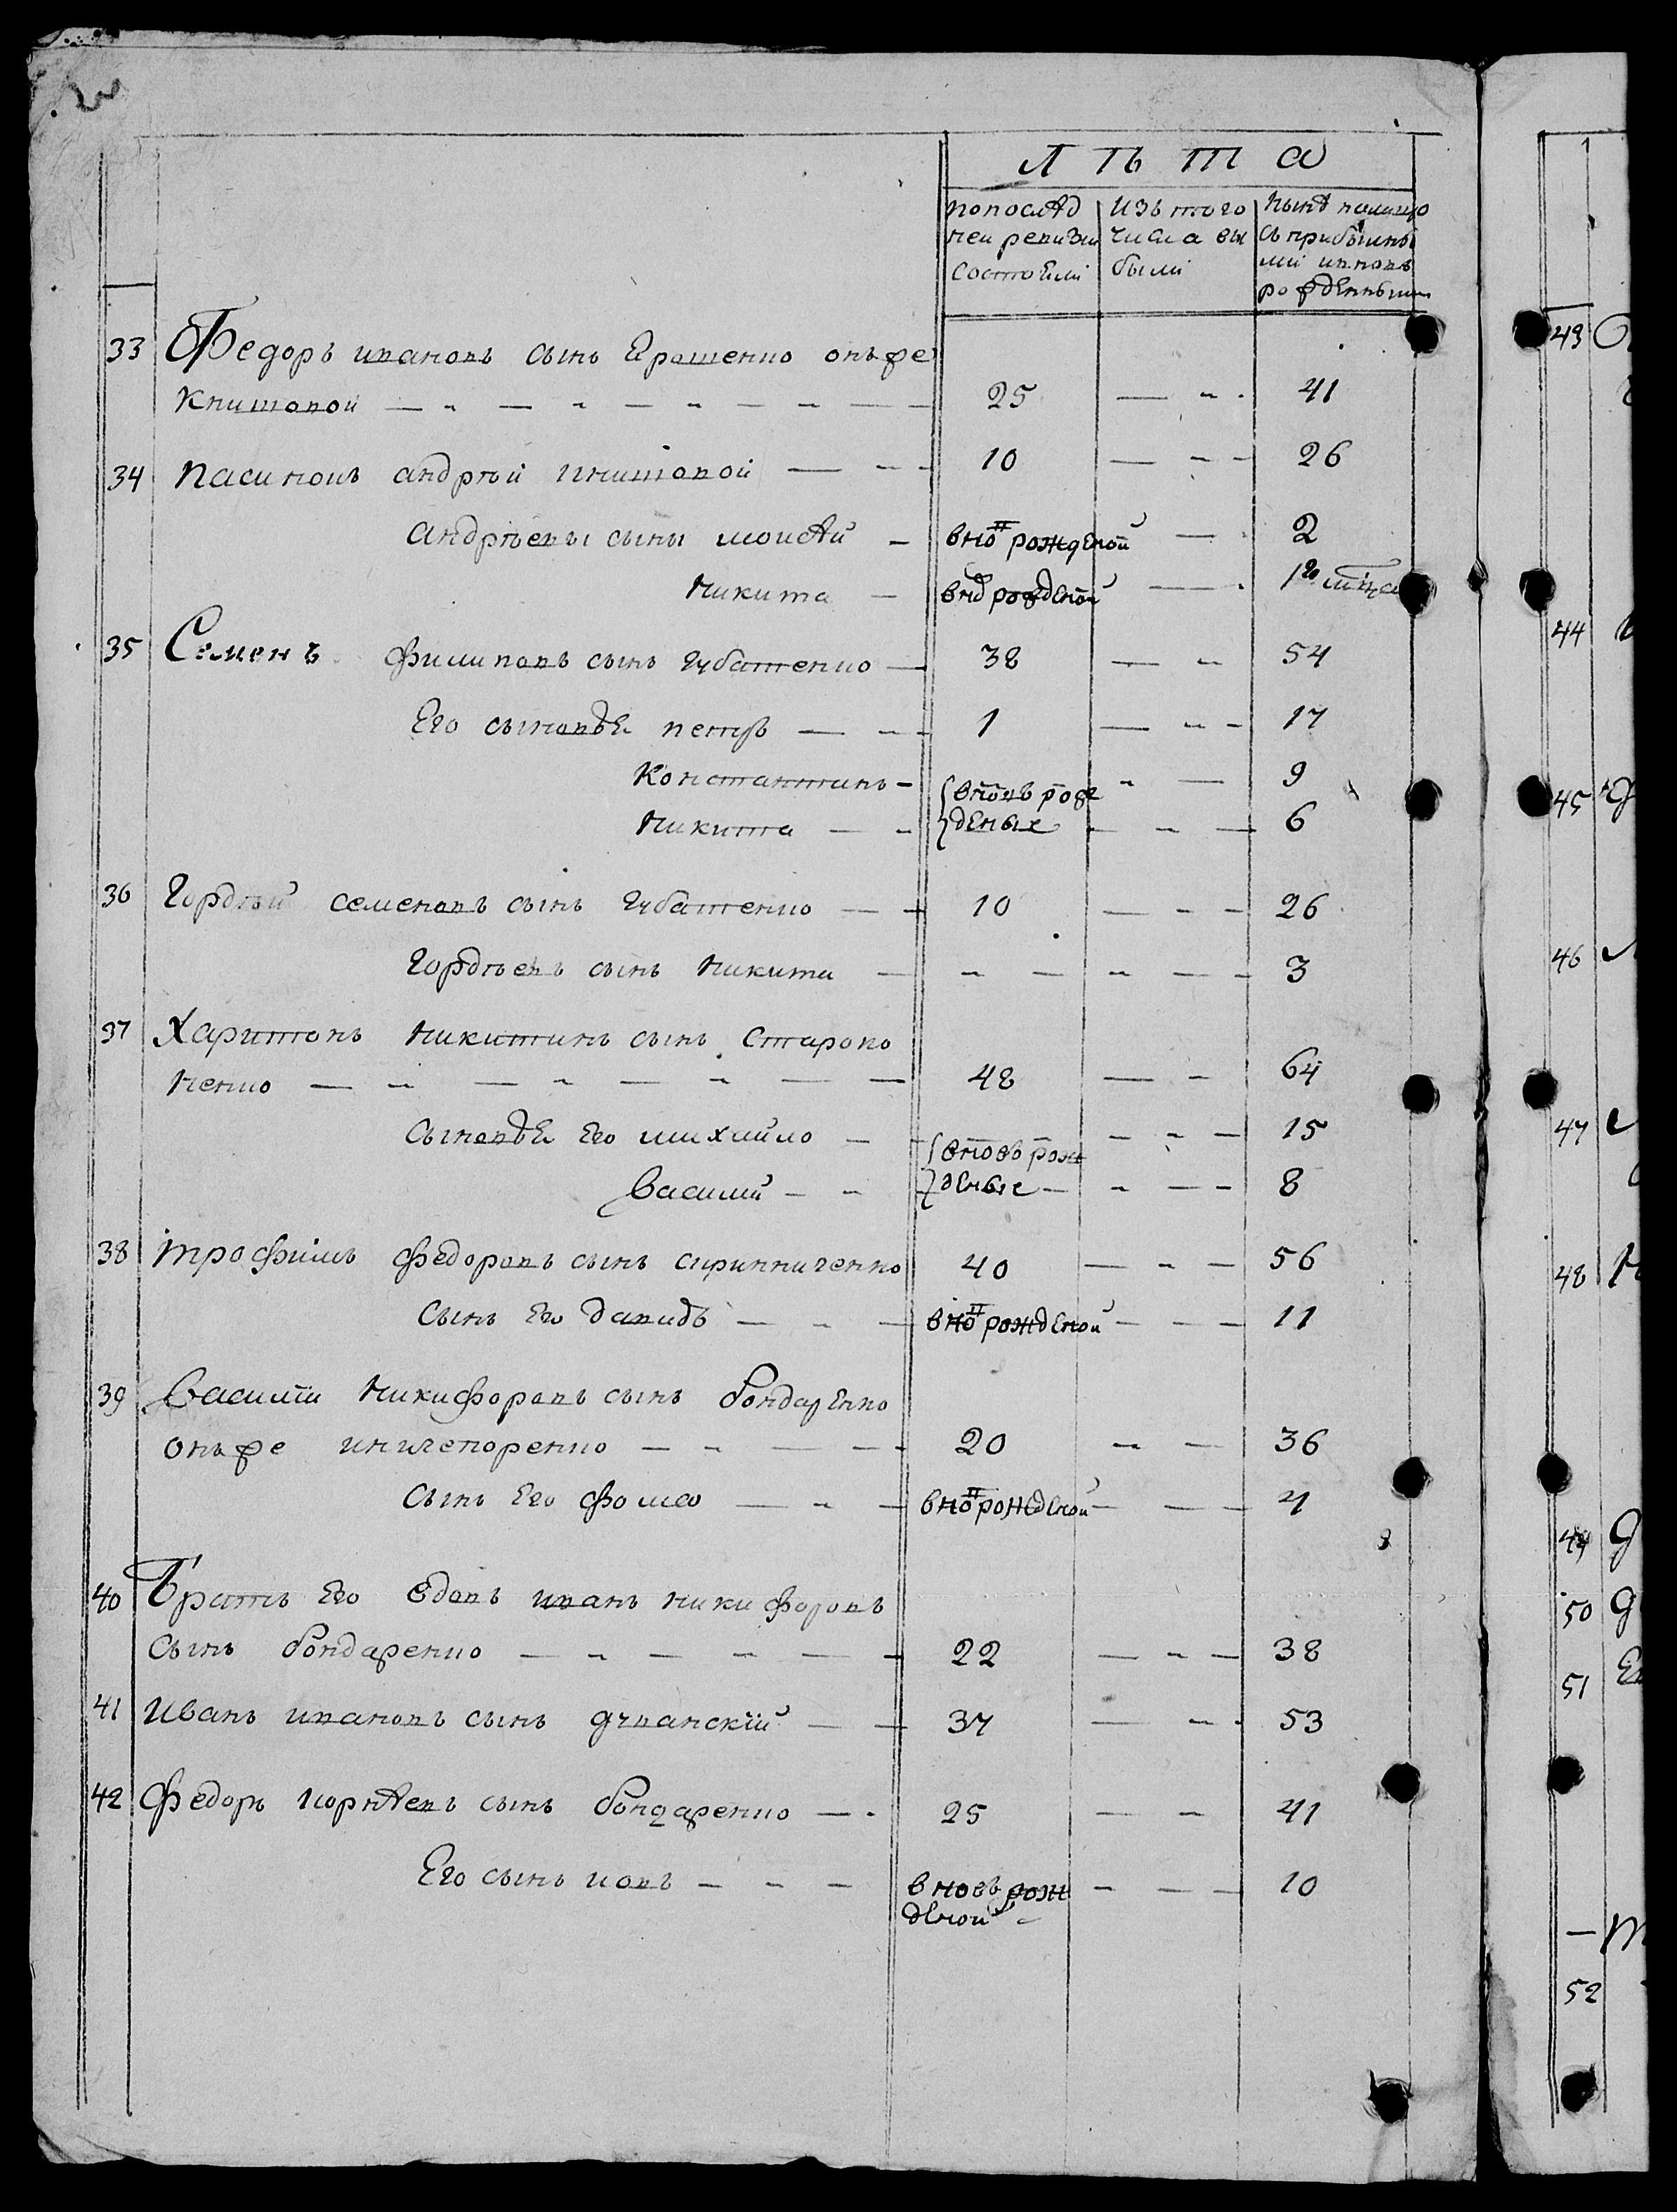 Лѣта
попослѣд
ней ревизіи
состояли
изъ того
числа вы
были
нынѣ налицо
съ прибылы
ми ивновь
рожденными
33 Федоръ ивановъ сынъ Ерошенко онъже
Книшовой 25 41
34 пасинокъ андрѣй книшовой 10 26
андрѣевы сыны моисѣй вно рожденой 2
никита рожденой 1го мца
35 Семенъ филиповъ сынъ губатенко 38 54
Его сыновѣя петръ 1 17
Константинъ 9
никита 6
вновъ рож
деные
36 Гордѣй семеновъ сынъ губатенко 10 26
гордѣевъ сынъ никита 3
37 Харитонъ никитинъ сынъ Старово
ненко 48 64
сыновѣя Его михайло 15
василий 8
вновъ рож
деные
38 трофимъ федоровъ сынъ скрипниченко 40 56
сынъ Его давидъ вно рожденой 11
39 василій никифоровъ сынъ бондаренко
онъже иничепоренко 20 36
сынъ Его фома вно рожденой 4
40 братъ Его вдовъ иванъ никифоровъ
сынъ бондаренко 22 38
41 иванъ ивановъ сынъ 37 53
42 федоръ корнѣевъ сынъ бондаренко 25 41
Его сынъ иовъ вновъ рож 10
деной
43
44
45
46
47
48
49
50
51
52